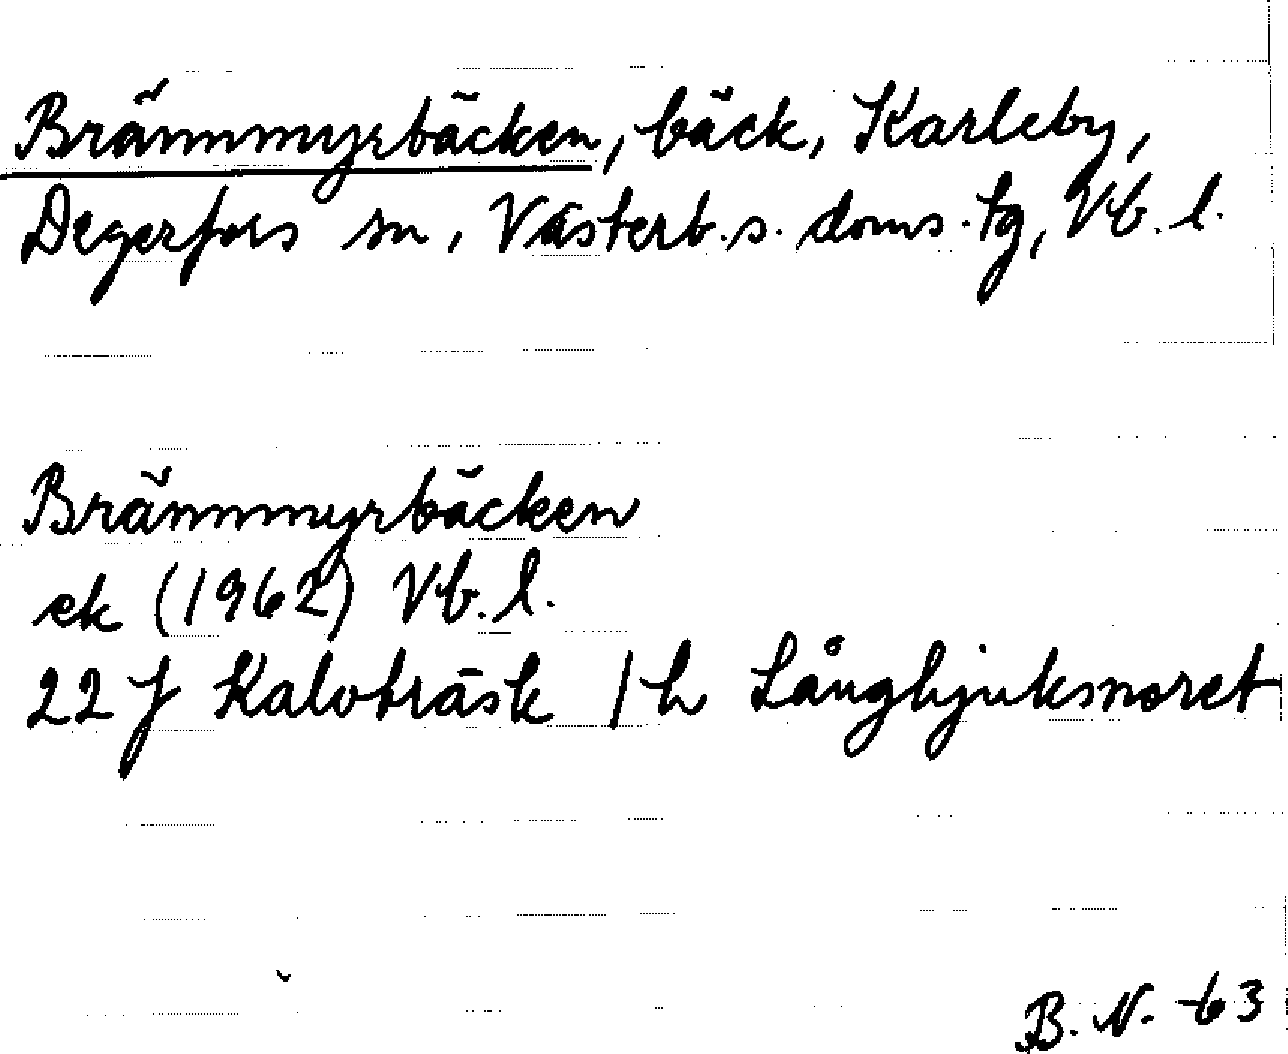 Brännmyrbäcken, bäck, Karleby,
Degerfors sn, Västerb. s. doms. tg, Vb. l.
Brännmyrbäcken
ek (1962) Vb. l.
22 J Kalvträsk / h Långhjuksmoret
B. N. -63